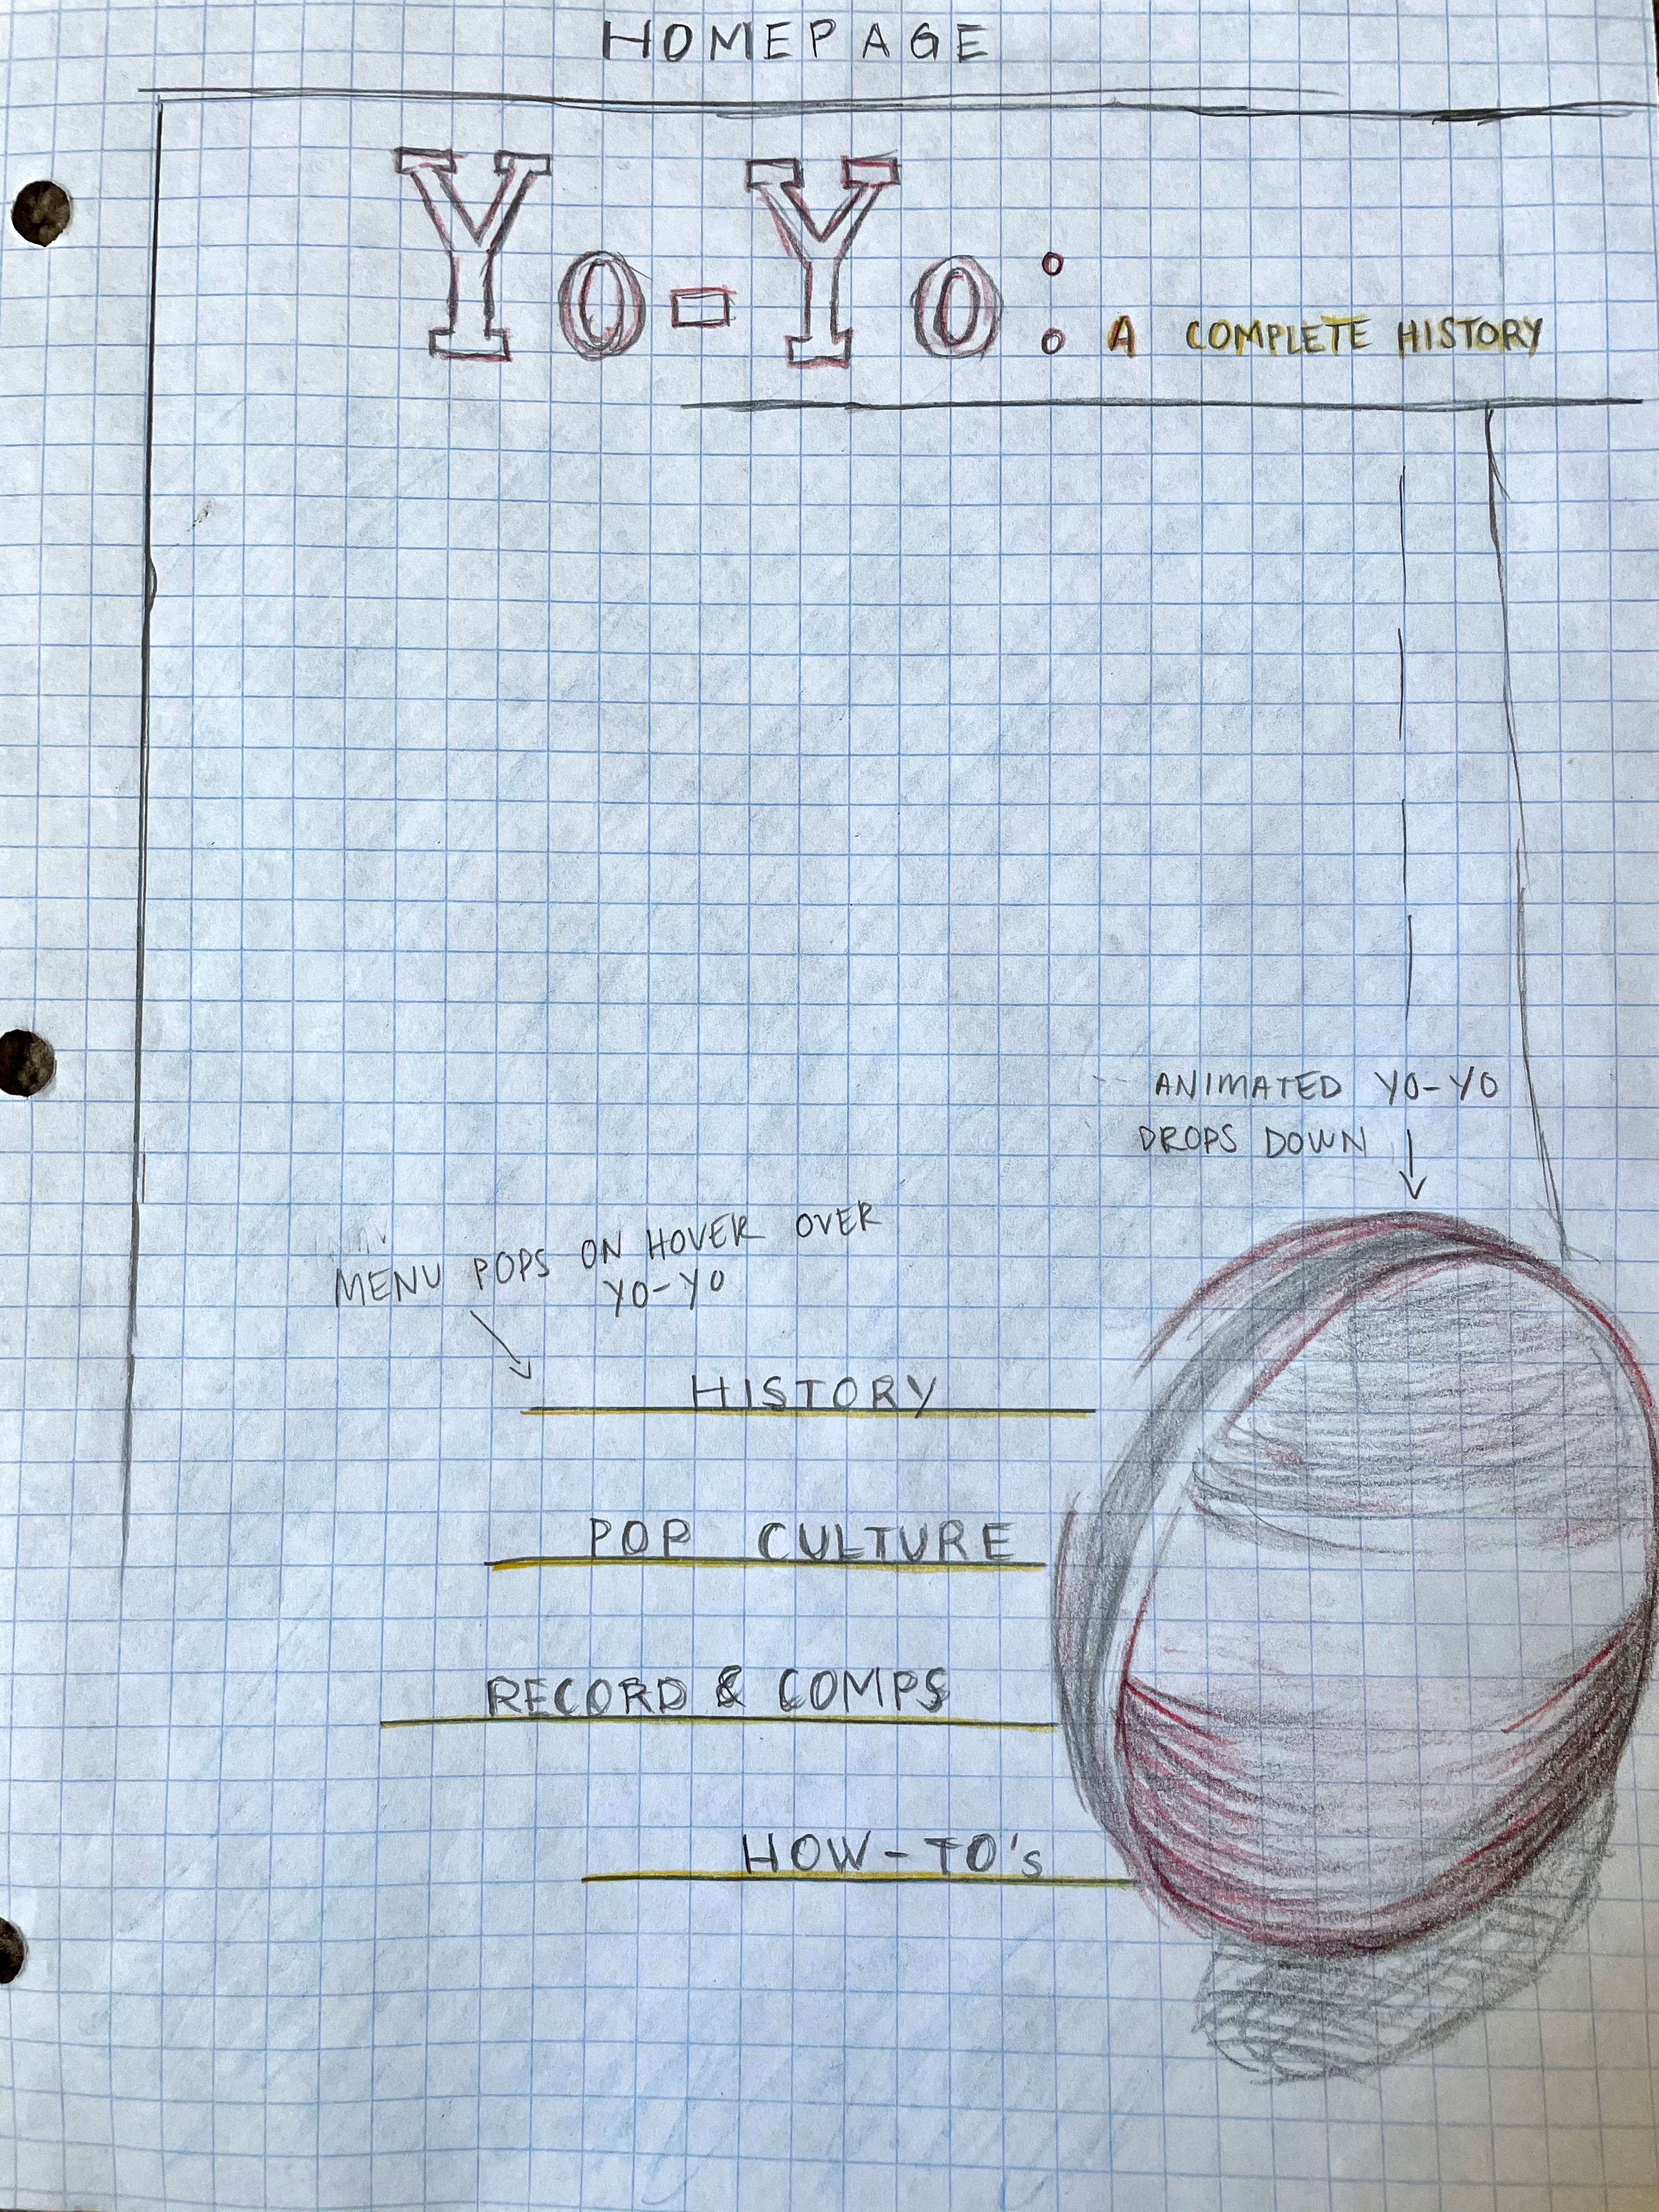 HOMEPAGE
Yo-Yo: A COMPLETE HISTORY
ANIMATED YO-YO
DROPS DOWN
MENU POPS ON HOVER OVER
YO-YO
HISTORY
POP CULTURE
RECORD & COMPS
HOW-TO's